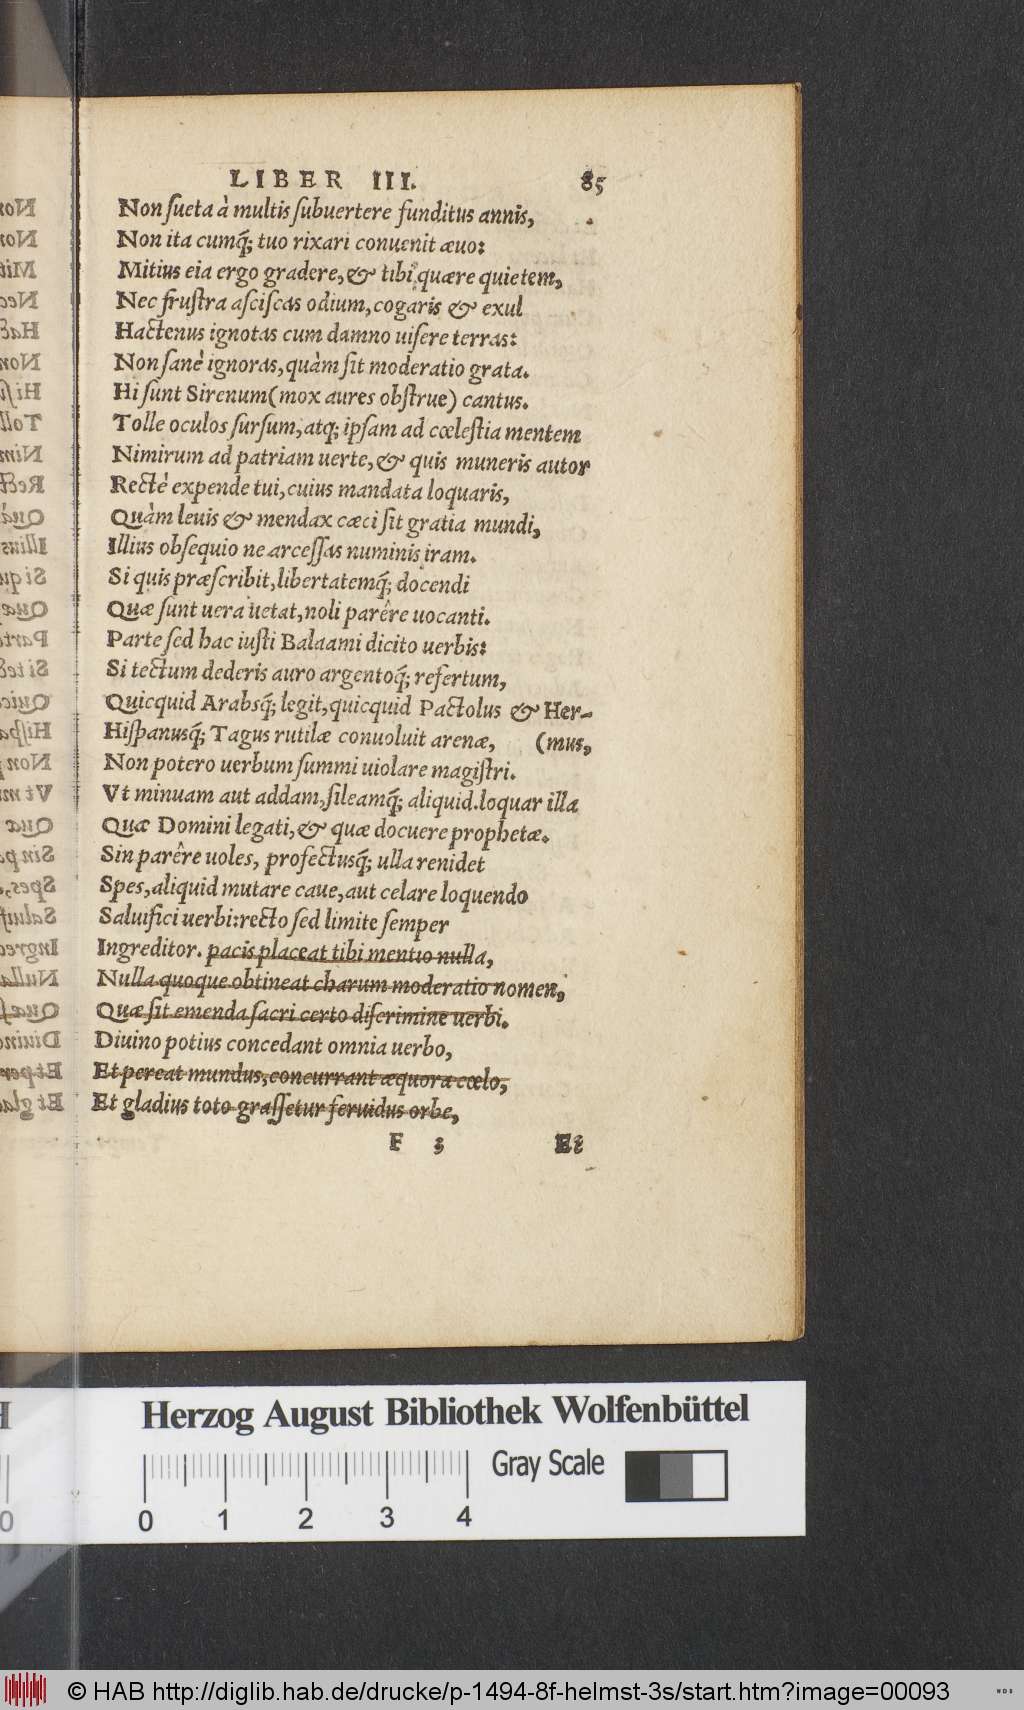 LIBER III. 85
Non ſueta à multis ſubuertere funditus annis,
Non ita cumq́; tuo rixari conuenit æuo:
Mitius eia ergo gradere, & tibi quære quietem,
Nec fruſtra aſciſcas odium, cogaris & exul
Hactenus ignotas cum damno uiſere terras:
Non ſanè ignoras, quàm ſit moderatio grata.
Hi ſunt Sirenum (mox aures obſtrue) cantus.
Tolle oculos ſurſum, atq; ipſam ad cœleſtia mentem
Nimirum ad patriam uerte, & quis muneris autor
Recté expende tui, cuius mandata loquaris,
Quàm leuis & mendax cæci ſit gratia mundi,
Illius obſequio ne arceſſas numinis iram.
Si quis præſcribit, libertatemq́; docendi
Quæ ſunt uera uetat, noli parêre uocanti.
Parte ſed hac iuſti Balaami dicito uerbis:
Si tectum dederis auro argentoq́; refertum,
Quicquid Arabsq́; legit, quicquid Pactolus & Her-
Hiſpanusq́; Tagus rutilæ conuoluit arenæ, (mus,
Non potero uerbum ſummi uiolare magiſtri.
Vt minuam aut addam, ſileamq́; aliquid. loquar illa
Quæ Domini legati, & quæ docuere prophetæ.
Sin parêre uoles, profectusq́; ulla renidet
Spes, aliquid mutare caue, aut celare loquendo
Saluifici uerbi: recto ſed limite ſemper
Ingreditor. pacis placeat tibi mentio nulla,
Nulla quoque obtineat charum moderatio nomen,
Quæ ſit emenda ſacri certo diſcrimine uerbi.
Diuino potius concedant omnia uerbo,
Et pereat mundus, concurrant æquora cœlo,
Et gladius toto graſſetur feruidus orbe,
F 3 Et
Herzog August Bibliothek Wolfenbüttel
Gray Scale
0 1 2 3 4
© HAB http://diglib.hab.de/drucke/p-1494-8f-helmst-3s/start.htm?image=00093